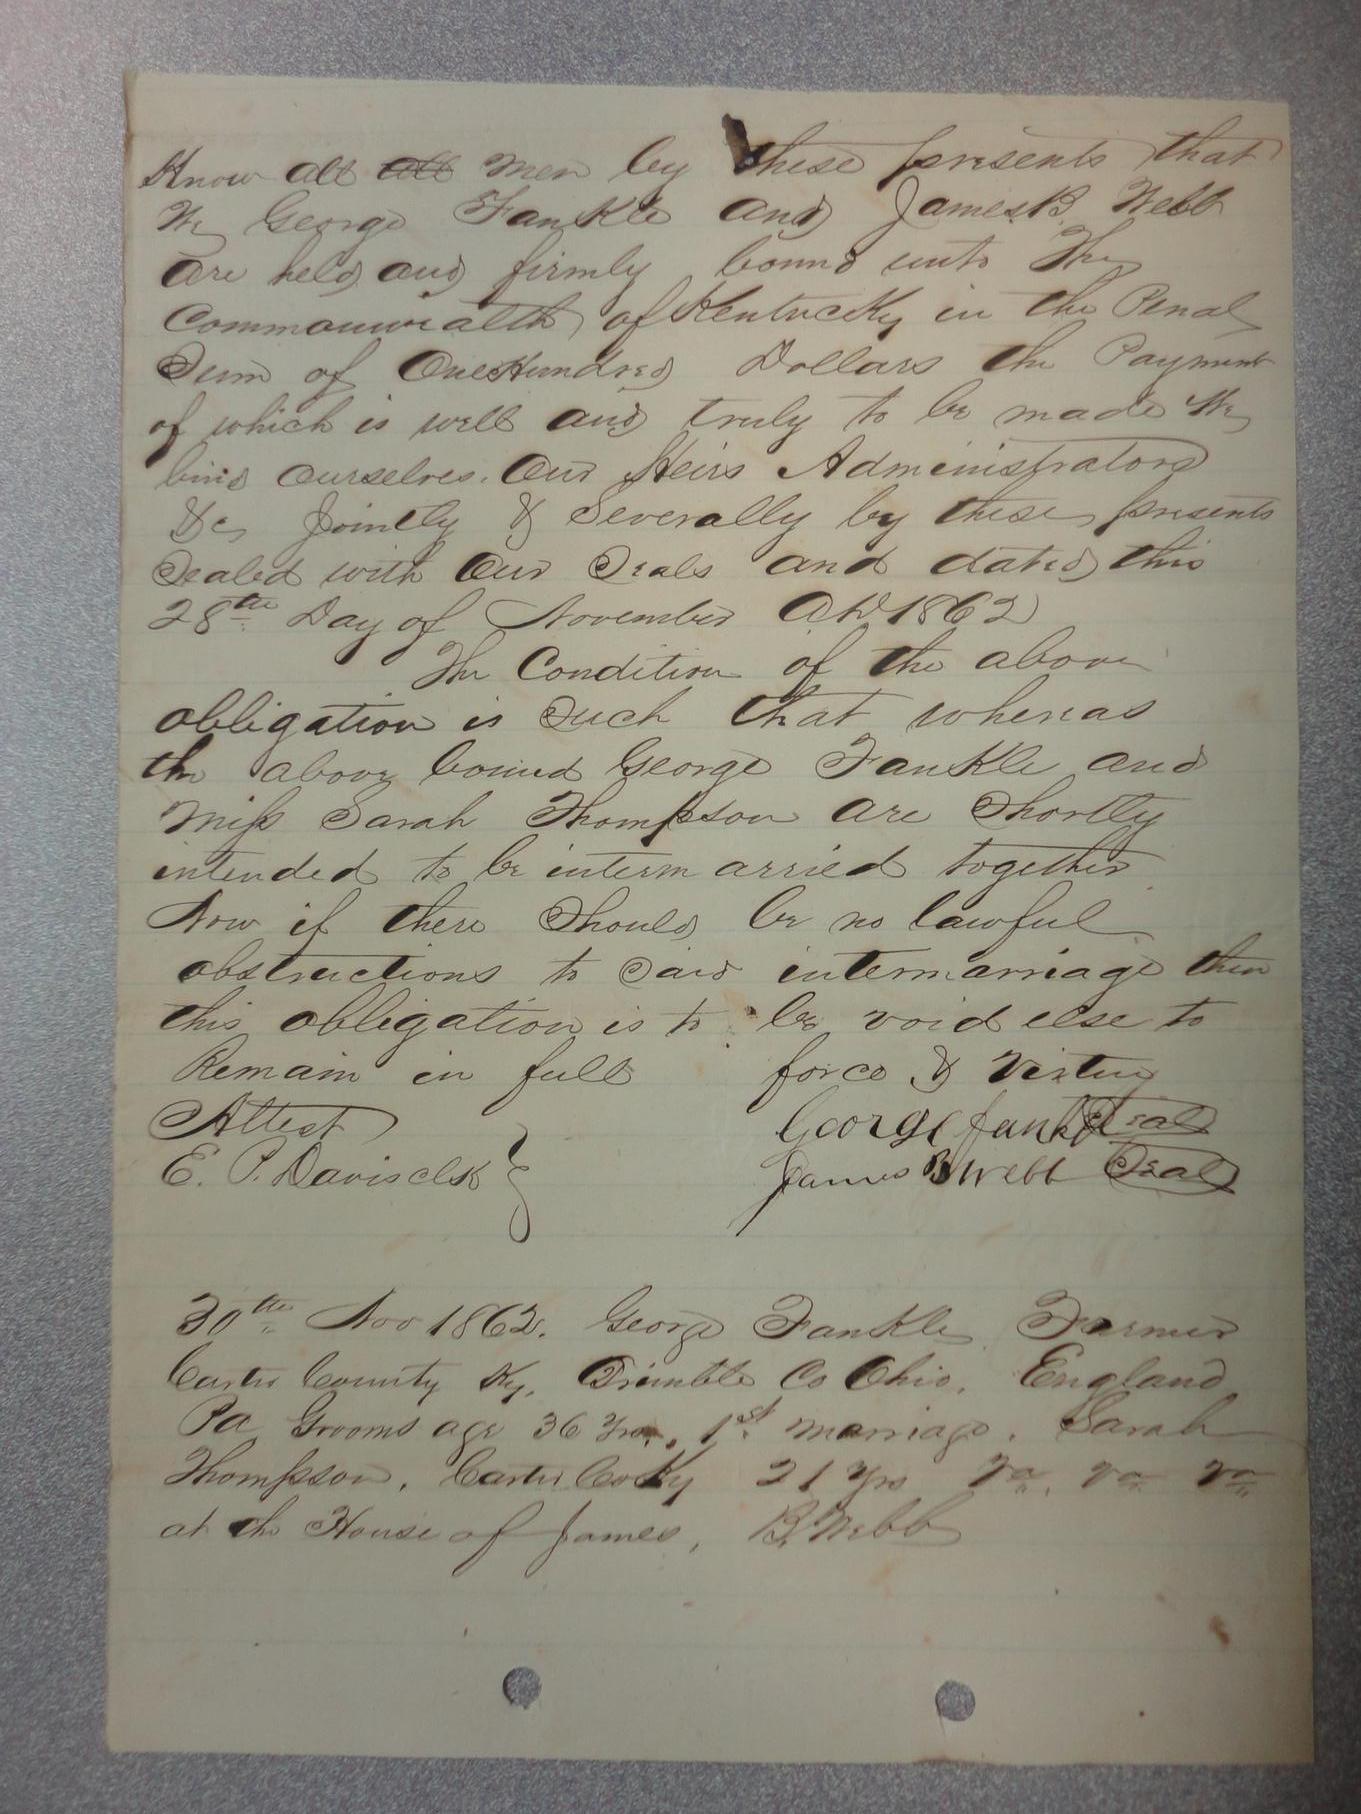 Know all all Men by these presents that
We George Fankle and James B. Webb
are held and firmly bound unto The
Commonwealth of Kentucky in the Penal
Sum of One Hundred Dollars the Payment
of which is well and truly to be made We
bind ourselves. Our Heirs Administrators
&c, Jointly & Severally by these presents
Sealed with Our Seals and dated this
28th Day of November AD 1862
The Condition of the above
obligation is Such that whereas
the above bound George Fankle and
Miss Sarah Thompson are Shortly
intended to be intermarried together
Now if there Should be no lawful
obstructions to Said intermarriage then
this obligation is to be void else to
Remain in full force & Virtue
Attest George Fankle Seal
E. P. Davis clk James B Webb Seal
30th Nov 1862. George Fankle Farmer
Carter County Ky, Trimble Co Ohio, England
Pa Grooms age 36 Yrs., 1st marriage. Sarah
Thompson, Carter Co Ky 21 Yrs Va. Va Va
at the House of James, B. Webb